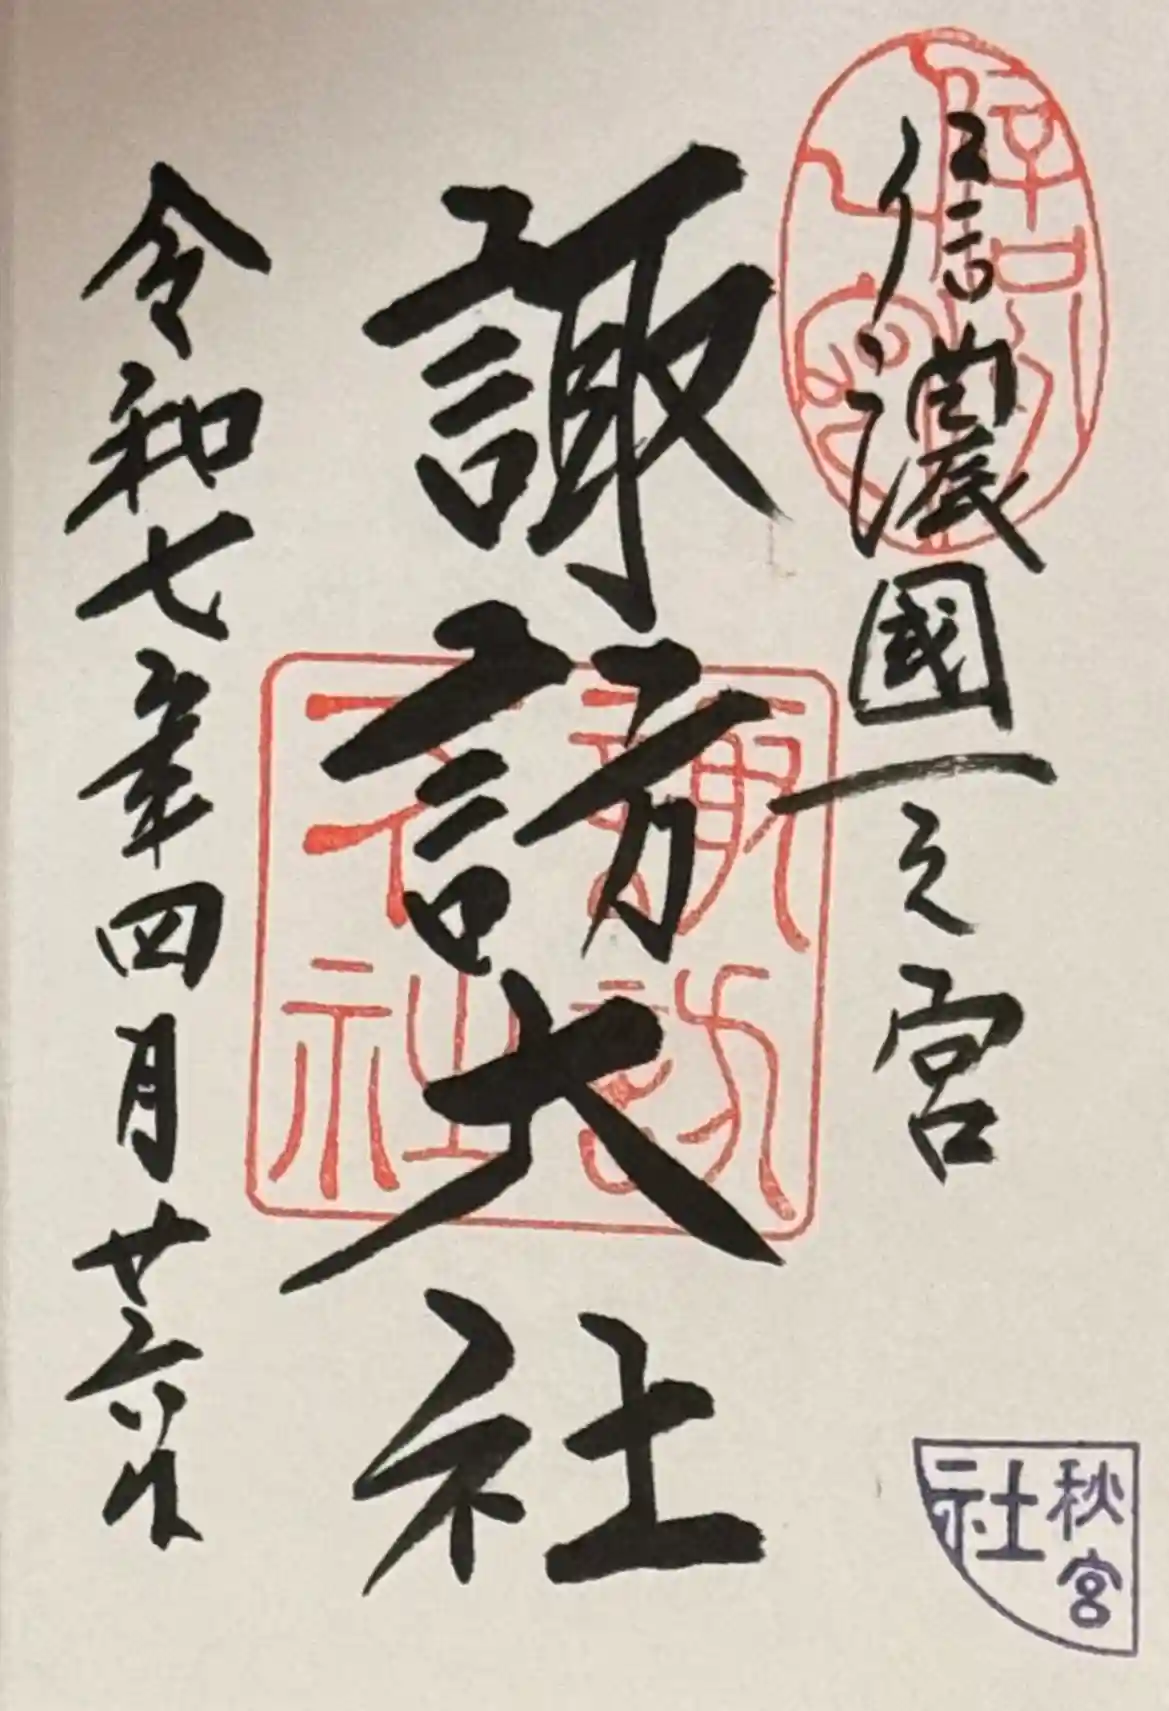 信濃國一之宮
諏訪大社
諏訪
大社
令和七年四月廿六日
秋宮
社